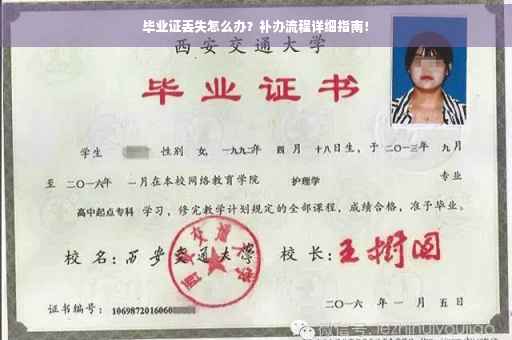 毕业证丢失怎么办？补办流程详细指南！
西安交通大学
毕业证书
学生 性别 女，一九九二年 四 月 十八日生，于 二〇一三年 九月
至 二〇一六年 一月在本校网络教育学院 护理学 专业
高中起点专科 学习，修完教学计划规定的全部课程，成绩合格，准予毕业。
校 名：西安交通大学 校 长：王树国
证书编号：1069872016060
二〇一六 年 一 月 五 日
微信号: jezhihuiyoujiao